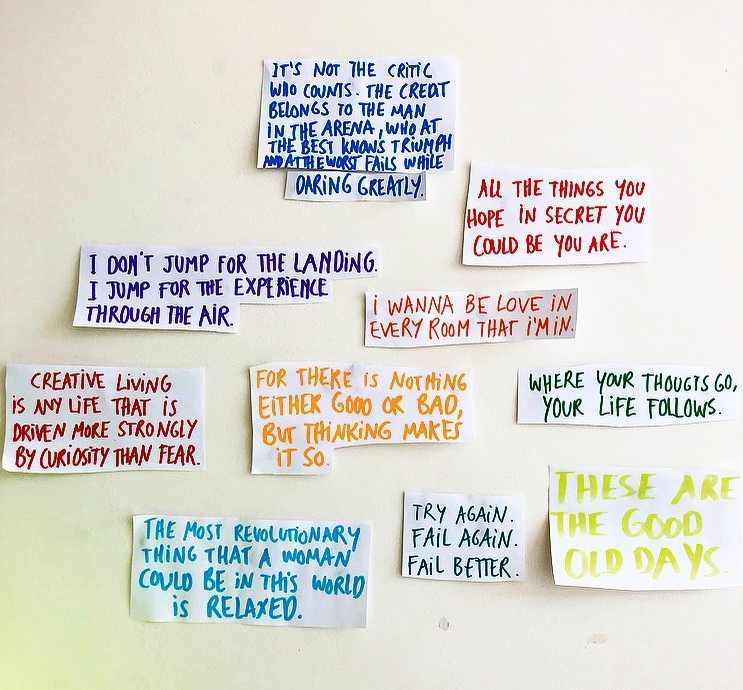 IT'S NOT THE CRITIC
WHO COUNTS. THE CREDIT
BELONGS TO THE MAN
IN THE ARENA, WHO AT
THE BEST KNOWS TRIUMPH
AND AT THE WORST FAILS WHILE
DARING GREATLY.
ALL THE THINGS YOU
HOPE IN SECRET YOU
COULD BE YOU ARE.
I DON'T JUMP FOR THE LANDING.
I JUMP FOR THE EXPERIENCE
THROUGH THE AIR.
I WANNA BE LOVE IN
EVERY ROOM THAT I'M IN.
CREATIVE LIVING
IS ANY LIFE THAT IS
DRIVEN MORE STRONGLY
BY CURIOSITY THAN FEAR.
FOR THERE IS NOTHING
EITHER GOOD OR BAD,
BUT THINKING MAKES
IT SO.
WHERE YOUR THOUGTS GO,
YOUR LIFE FOLLOWS.
THE MOST REVOLUTIONARY
THING THAT A WOMAN
COULD BE IN THIS WORLD
IS RELAXED.
TRY AGAIN.
FAIL AGAIN.
FAIL BETTER.
THESE ARE
THE GOOD
OLD DAYS.